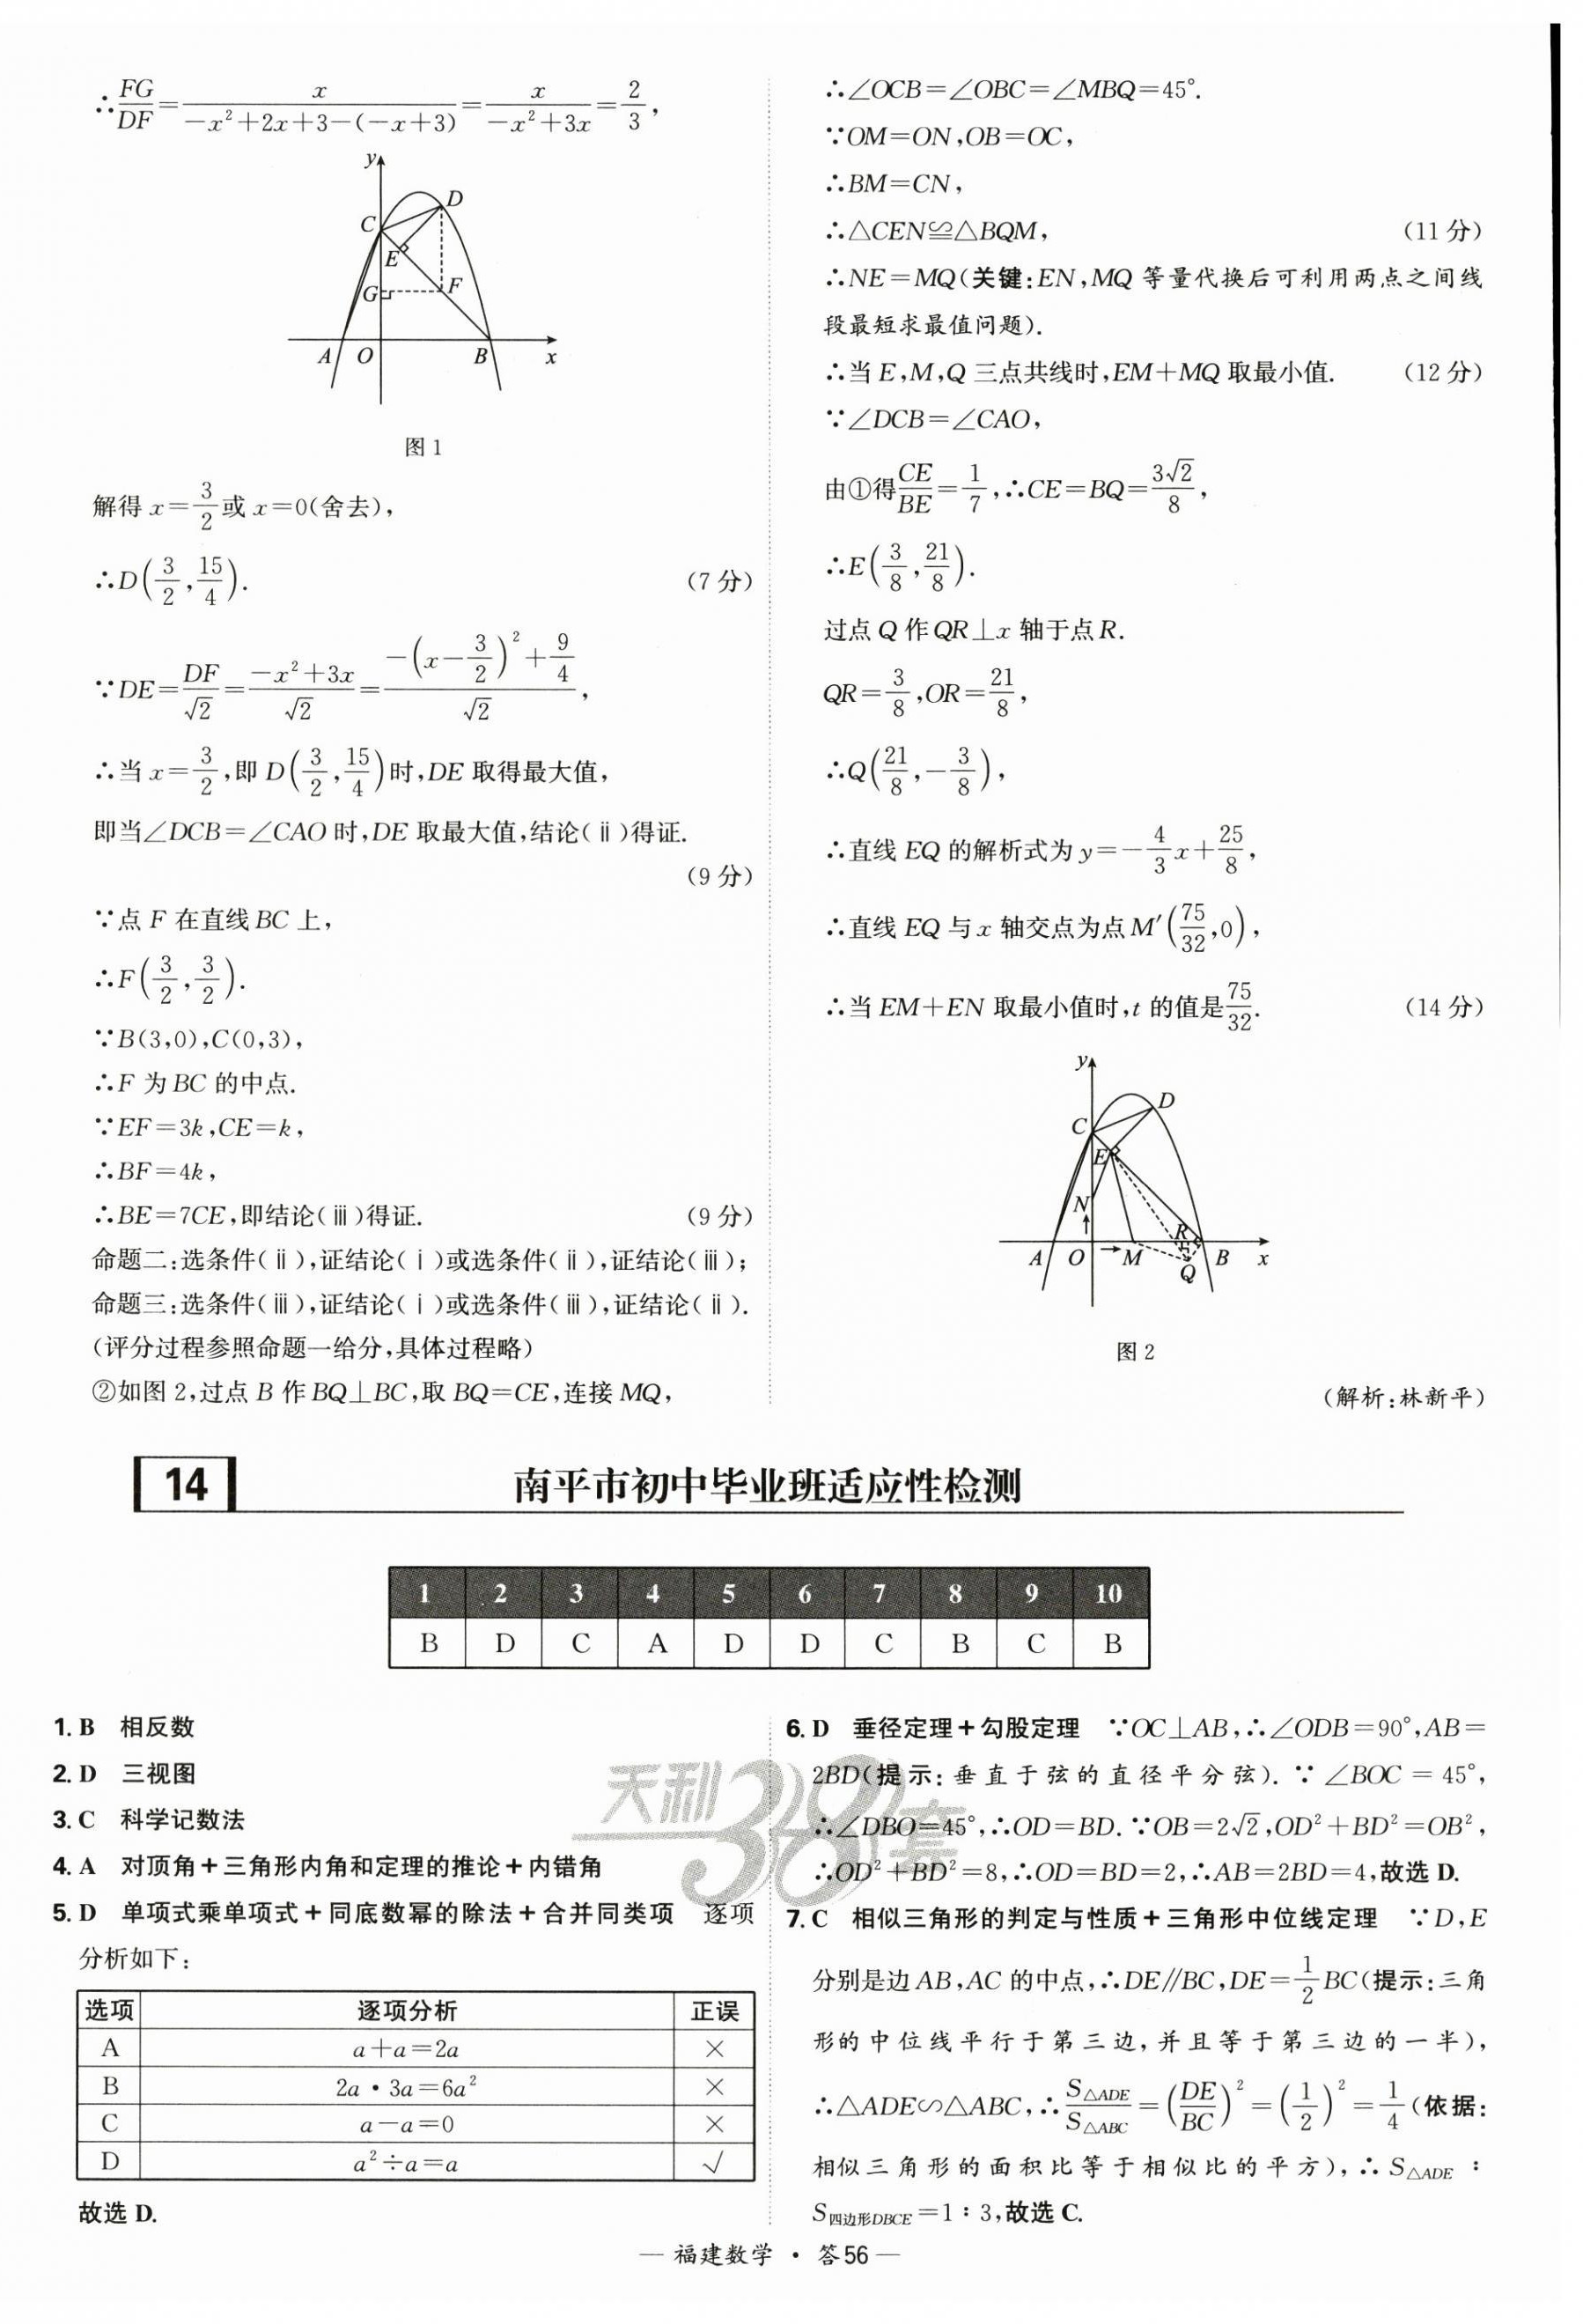 ∴FG/DF=x/(-x²+2x+3-(-x+3))=x/(-x²+3x)=2/3,
y
D
C
E
G
F
A
O
B
x
图1
解得 x=3/2或 x=0(舍去),
∴D(3/2,15/4). (7分)
∵DE=DF/√2=(-x²+3x)/√2=(-(x-3/2)²+9/4)/√2,
∴当 x=3/2,即 D(3/2,15/4)时,DE 取得最大值,
即当∠DCB=∠CAO 时,DE 取最大值,结论(ⅱ)得证.
(9分)
∵点 F 在直线 BC 上,
∴F(3/2,3/2).
∵B(3,0),C(0,3),
∴F 为 BC 的中点.
∵EF=3k,CE=k,
∴BF=4k,
∴BE=7CE,即结论(ⅲ)得证. (9分)
命题二:选条件(ⅱ),证结论(ⅰ)或选条件(ⅱ),证结论(ⅲ);
命题三:选条件(ⅲ),证结论(ⅰ)或选条件(ⅲ),证结论(ⅱ).
(评分过程参照命题一给分,具体过程略)
②如图 2,过点 B 作 BQ⊥BC,取 BQ=CE,连接 MQ,
∴∠OCB=∠OBC=∠MBQ=45°.
∵OM=ON,OB=OC,
∴BM=CN,
∴△CEN≌△BQM, (11分)
∴NE=MQ(关键:EN,MQ 等量代换后可利用两点之间线
段最短求最值问题).
∴当 E,M,Q 三点共线时,EM+MQ 取最小值. (12分)
∵∠DCB=∠CAO,
由①得CE/BE=1/7,∴CE=BQ=3√2/8,
∴E(3/8,21/8).
过点 Q 作 QR⊥x 轴于点 R.
QR=3/8,OR=21/8,
∴Q(21/8,-3/8),
∴直线 EQ 的解析式为 y=-4/3x+25/8,
∴直线 EQ 与 x 轴交点为点 M′(75/32,0),
∴当 EM+EN 取最小值时,t 的值是75/32. (14分)
y
D
C
E
N
R
A
O
M
Q
B
x
图2
(解析:林新平)
14 南平市初中毕业班适应性检测
1 2 3 4 5 6 7 8 9 10
B D C A D D C B C B
1. B 相反数
2. D 三视图
3. C 科学记数法
4. A 对顶角+三角形内角和定理的推论+内错角
5. D 单项式乘单项式+同底数幂的除法+合并同类项 逐项
分析如下:
选项 逐项分析 正误
A a+a=2a ×
B 2a·3a=6a² ×
C a-a=0 ×
D a²÷a=a √
故选 D.
天利38套
6. D 垂径定理+勾股定理 ∵OC⊥AB,∴∠ODB=90°,AB=
2BD(提示:垂直于弦的直径平分弦).∵∠BOC=45°,
∴∠DBO=45°,∴OD=BD.∵OB=2√2,OD²+BD²=OB²,
∴OD²+BD²=8,∴OD=BD=2,∴AB=2BD=4,故选 D.
7. C 相似三角形的判定与性质+三角形中位线定理 ∵D,E
分别是边 AB,AC 的中点,∴DE∥BC,DE=1/2BC(提示:三角
形的中位线平行于第三边,并且等于第三边的一半),
∴△ADE∽△ABC,∴S△ADE/S△ABC=(DE/BC)²=(1/2)²=1/4(依据:
相似三角形的面积比等于相似比的平方),∴S△ADE:
S四边形DBCE=1:3,故选 C.
— 福建数学·答56 —